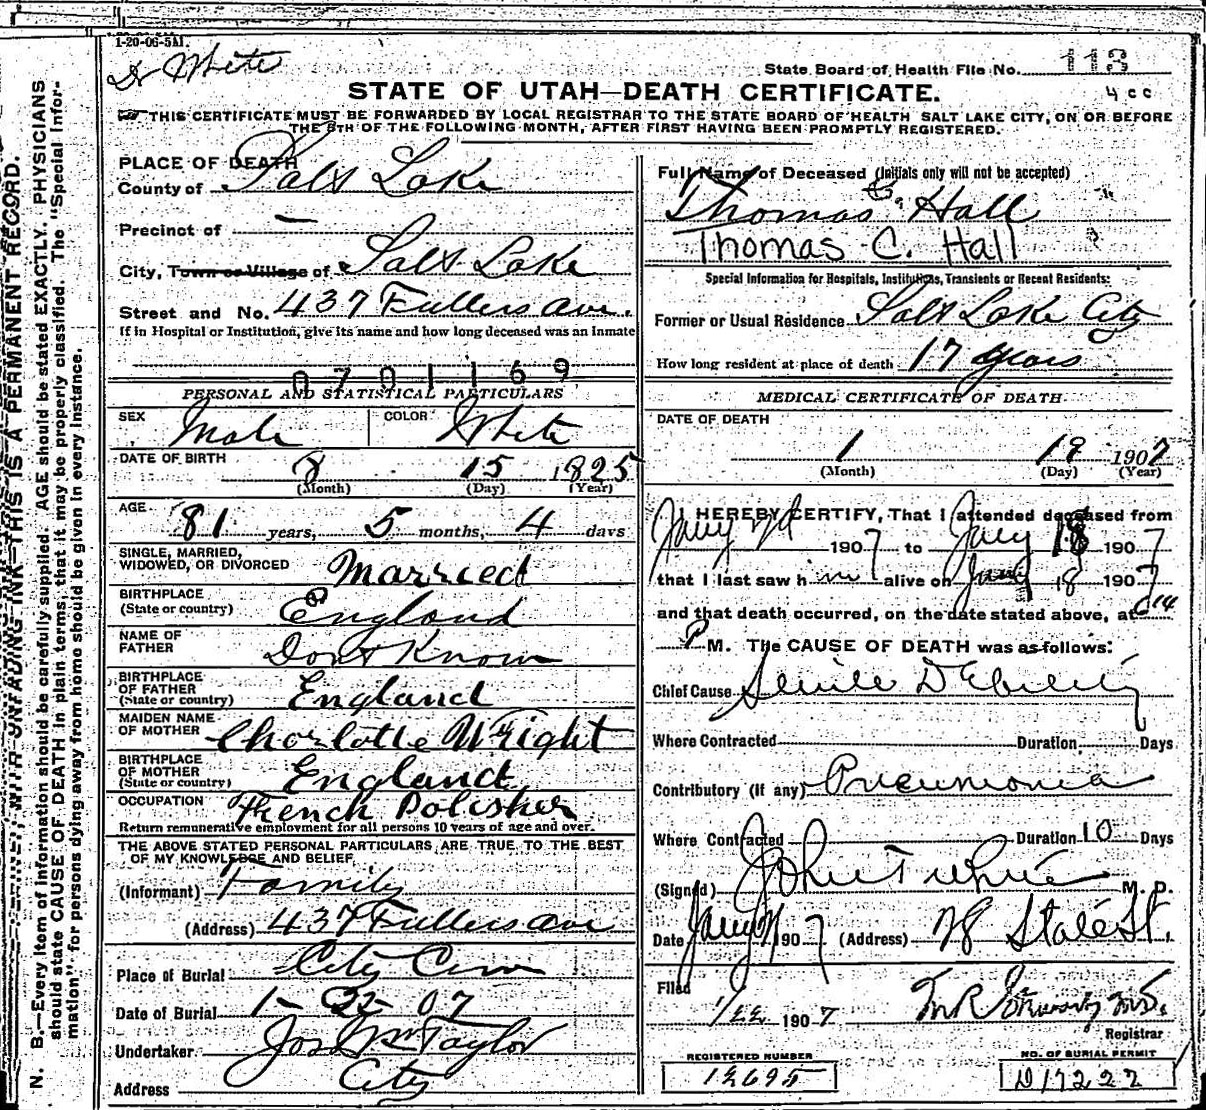 1-20-06-5M.
Dr White
State Board of Health File No. 113
4 cc
STATE OF UTAH—DEATH CERTIFICATE.
THIS CERTIFICATE MUST BE FORWARDED BY LOCAL REGISTRAR TO THE STATE BOARD OF HEALTH SALT LAKE CITY, ON OR BEFORE
THE 5TH OF THE FOLLOWING MONTH, AFTER FIRST HAVING BEEN PROMPTLY REGISTERED.
PLACE OF DEATH
County of Salt Lake
Precinct of —
City, Town or Village of Salt Lake
Street and No. 437 Fullers ave.
If in Hospital or Institution, give its name and how long deceased was an Inmate
0701169
PERSONAL AND STATISTICAL PARTICULARS
SEX Male COLOR White
DATE OF BIRTH 8 15 1825
(Month) (Day) (Year)
AGE 81 years, 5 months, 4 days
SINGLE, MARRIED,
WIDOWED, OR DIVORCED Married
BIRTHPLACE
(State or country) England
NAME OF
FATHER Dont Know
BIRTHPLACE
OF FATHER
(State or country) England
MAIDEN NAME
OF MOTHER Charlotte Wright
BIRTHPLACE
OF MOTHER
(State or country) England
OCCUPATION French Polisher
Return remunerative employment for all persons 10 years of age and over.
THE ABOVE STATED PERSONAL PARTICULARS ARE TRUE TO THE BEST
OF MY KNOWLEDGE AND BELIEF.
(Informant) Family
(Address) 437 Fullers ave
Place of Burial City Cem
Date of Burial 1-22-07
Undertaker Jos Wm Taylor
Address City
Full Name of Deceased (Initials only will not be accepted)
Thomas C. Hall
Thomas C. Hall
Special Information for Hospitals, Institutions, Transients or Recent Residents:
Former or Usual Residence Salt Lake City
How long resident at place of death 17 years
MEDICAL CERTIFICATE OF DEATH
DATE OF DEATH
1 19 1907
(Month) (Day) (Year)
I HEREBY CERTIFY, That I attended deceased from
Jany 1907 to Jany 18 1907
that I last saw him alive on Jany 18 1907
and that death occurred, on the date stated above, at
P M. The CAUSE OF DEATH was as follows:
Chief Cause Senile Debility
Where Contracted Duration Days
Contributory (if any) Pneumonia
Where Contracted Duration 10 Days
(Signed) John T White M. D.
Date Jany 1907 (Address) State St.
Filed 1/22 1907
Registrar
REGISTERED NUMBER
12695
NO. OF BURIAL PERMIT
D17222
N. B.—Every item of information should be carefully supplied. AGE should be stated EXACTLY. PHYSICIANS
should state CAUSE OF DEATH in plain terms, that it may be properly classified. The "Special Infor-
mation" for persons dying away from home should be given in every instance.
UNFADING INK—THIS IS A PERMANENT RECORD.